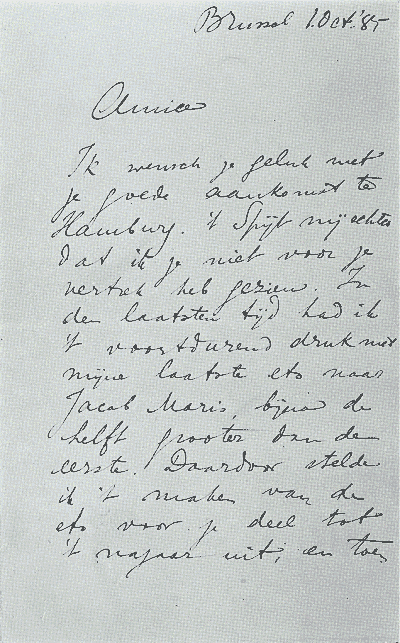 Brussel 1 Oct. '85
Amice
Ik wensch je geluk met
je goede aankomst te
Hamburg. 't Spijt mij echter
dat ik je niet voor je
vertrek heb gezien. In
den laatsten tijd had ik
't voortdurend druk met
mijne laatste ets naar
Jacob Maris, bijna de
helft grooter dan de
eerste. Daardoor stelde
ik 't maken van de
ets voor je deel tot
't najaar uit, en toen